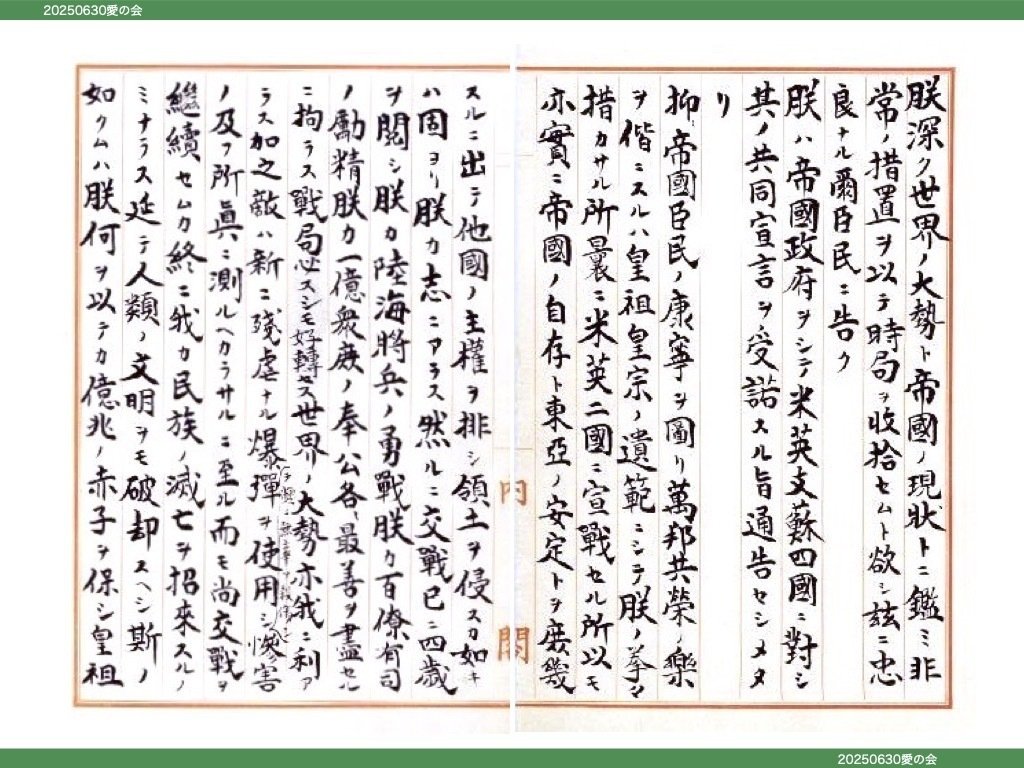 20250630愛の会
朕深ク世界ノ大勢ト帝國ノ現狀トニ鑑ミ非
常ノ措置ヲ以テ時局ヲ收拾セムト欲シ茲ニ忠
良ナル爾臣民ニ告ク
朕ハ帝國政府ヲシテ米英支蘇四國ニ對シ
其ノ共同宣言ヲ受諾スル旨通告セシメタ
リ
抑〻帝國臣民ノ康寧ヲ圖リ萬邦共榮ノ樂
ヲ偕ニスルハ皇祖皇宗ノ遺範ニシテ朕ノ拳〻
措カサル所曩ニ米英二國ニ宣戰セル所以モ
亦實ニ帝國ノ自存ト東亞ノ安定トヲ庶幾
内閣
スルニ出テ他國ノ主權ヲ排シ領土ヲ侵スカ如キ
ハ固ヨリ朕カ志ニアラス然ルニ交戰已ニ四歲
ヲ閱シ朕カ陸海將兵ノ勇戰朕カ百僚有司
ノ勵精朕カ一億衆庶ノ奉公各〻最善ヲ盡セル
ニ拘ラス戰局必スシモ好轉セス世界ノ大勢亦我ニ利ア
ラス加之敵ハ新ニ殘虐ナル爆彈ヲ使用シ無辜ヲ殺傷シ慘害
ノ及フ所眞ニ測ルヘカラサルニ至ル而モ尚交戰ヲ
繼續セムカ終ニ我カ民族ノ滅亡ヲ招來スルノ
ミナラス延テ人類ノ文明ヲモ破却スヘシ斯ノ
如クムハ朕何ヲ以テカ億兆ノ赤子ヲ保シ皇祖
20250630愛の会